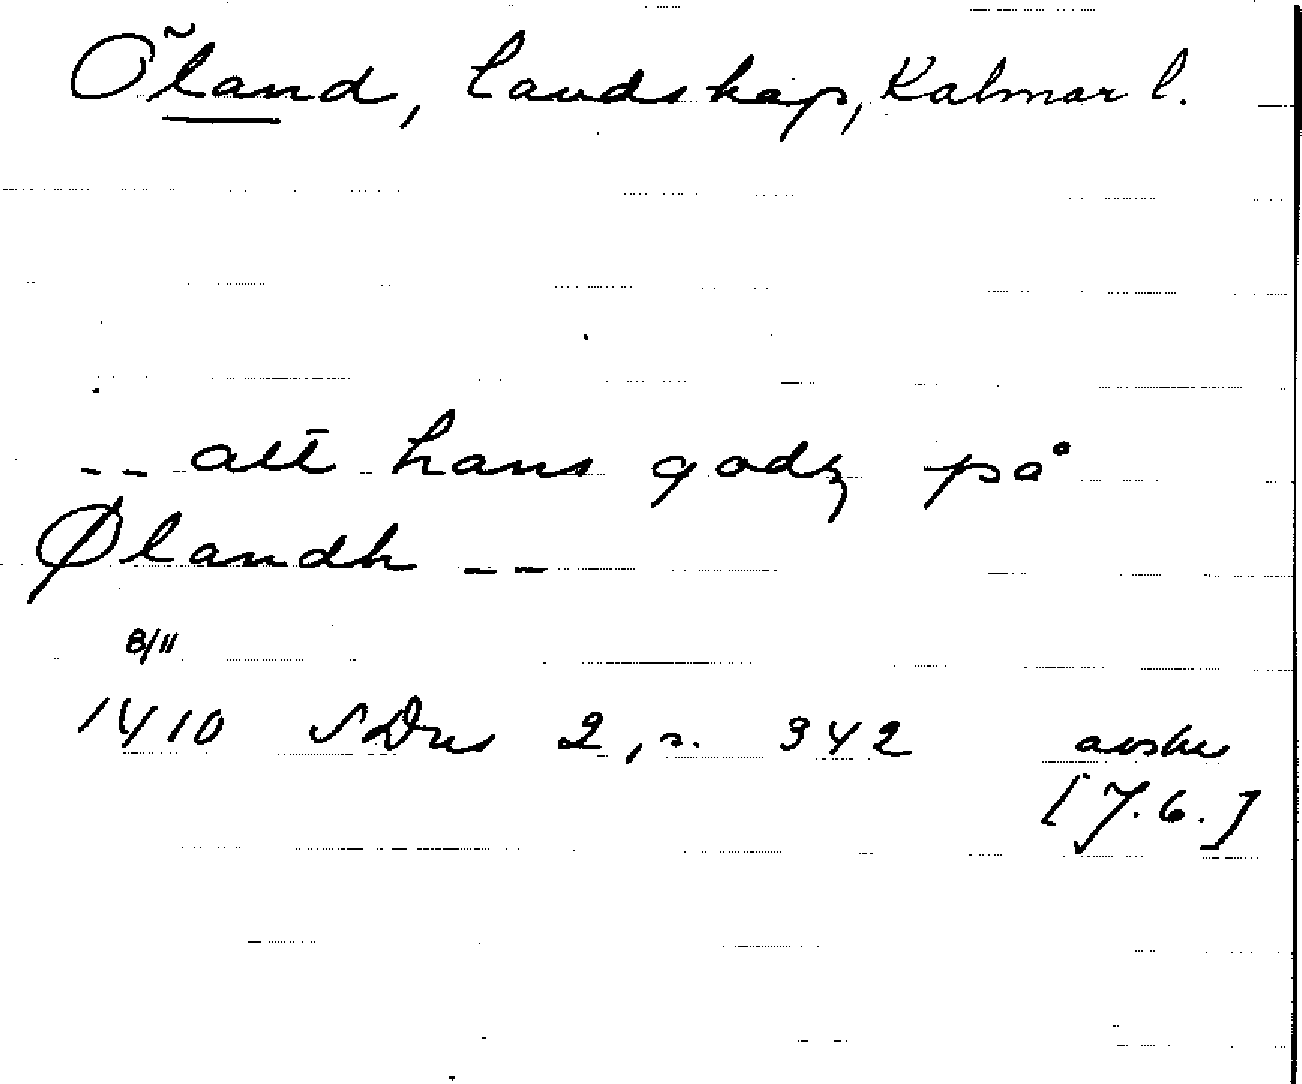 Öland, landskap, Kalmar l.
-- alt hans godz på
Ølandh --
8/11
1410 SDns 2, s. 342 avskr
[J.G.]